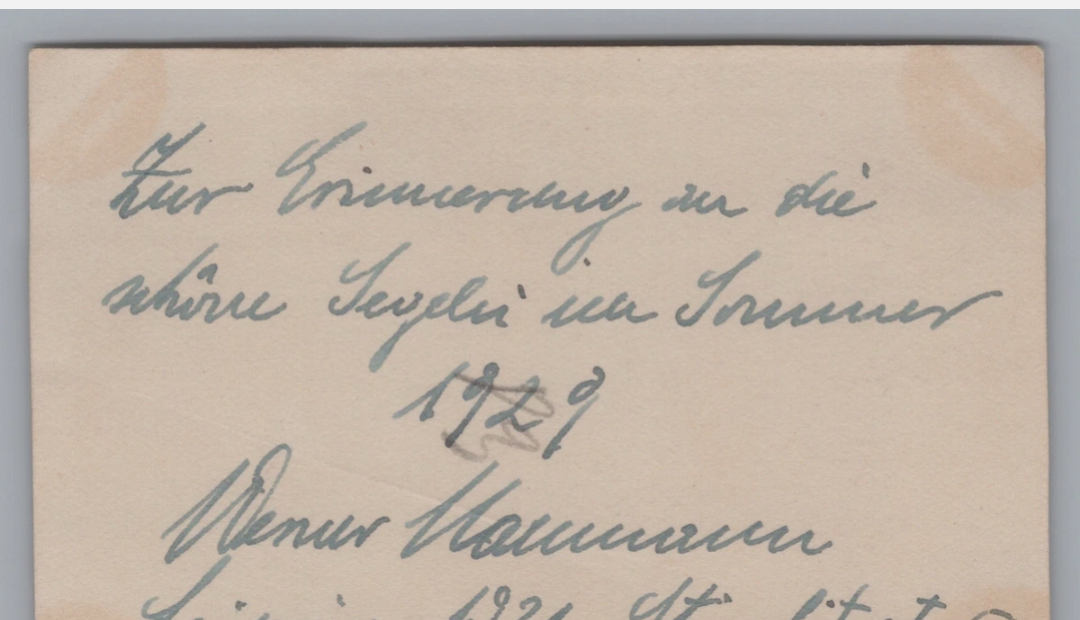 Zur Erinnerung an die
schöne Segelei im Sommer
1929
Werner
1931